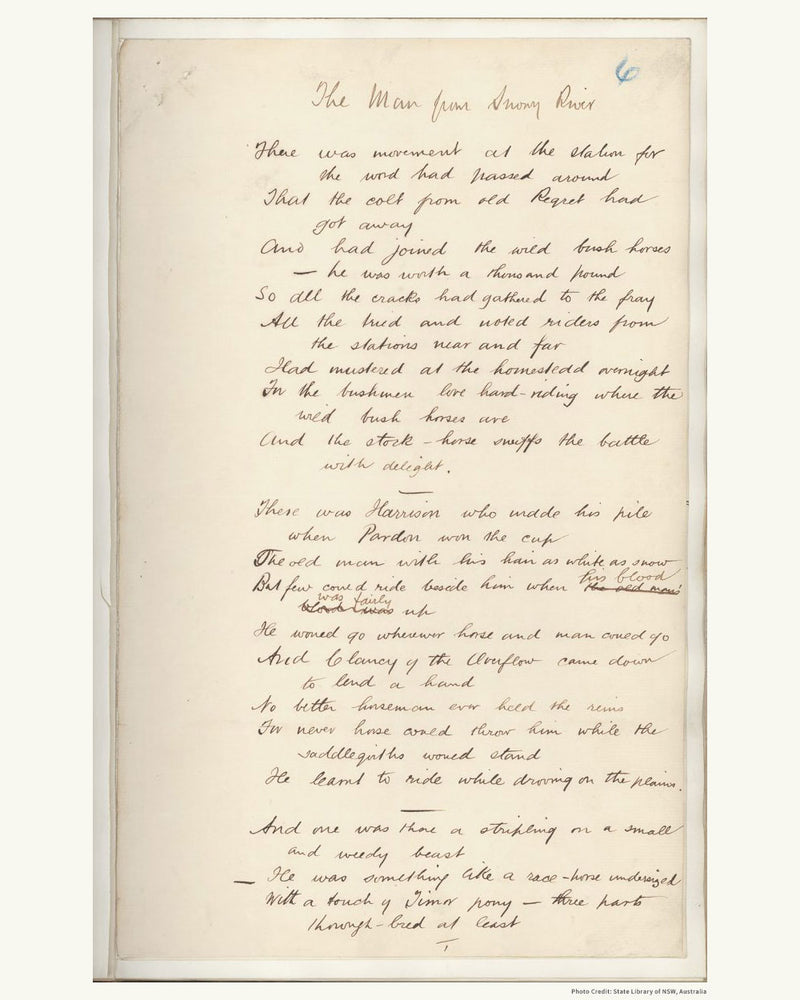 6
The Man from Snowy River
There was movement at the station for
the word had passed around
That the colt from old Regret had
got away
And had joined the wild bush horses
— he was worth a thousand pound
So all the cracks had gathered to the fray
All the tried and noted riders from
the stations near and far
Had mustered at the homestead overnight
For the bushmen love hard-riding where the
wild bush horses are
And the stock-horse sniffs the battle
with delight.
There was Harrison who made his pile
when Pardon won the cup
The old man with his hair as white as snow
But few could ride beside him when the old man's
his blood
was fairly
blood was up
He would go wherever horse and man could go
And Clancy of the Overflow came down
to lend a hand
No better horseman ever held the reins
For never horse could throw him while the
saddlegirths would stand
He learnt to ride while droving on the plains.
And one was there a stripling on a small
and weedy beast
— He was something like a race-horse undersized
With a touch of Timor pony — three parts
thorough-bred at least
Photo Credit: State Library of NSW, Australia